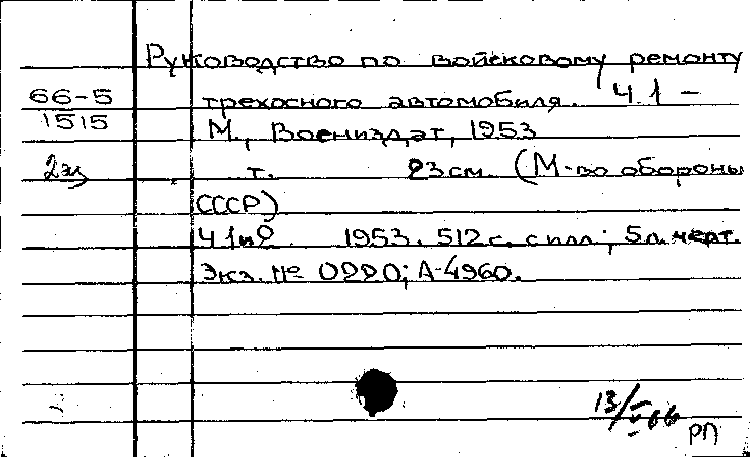 Руководство по войсковому ремонту
66-5 трехосного автомобиля. Ч 1 -
1515 М., Воениздат, 1953
2 т. 23 см. (М-во обороны
СССР)
Ч 1 и 2 1953. 512 с. с илл; 5 л. черт.
Экз. № 0220; А-4960.
13/V 06
РП